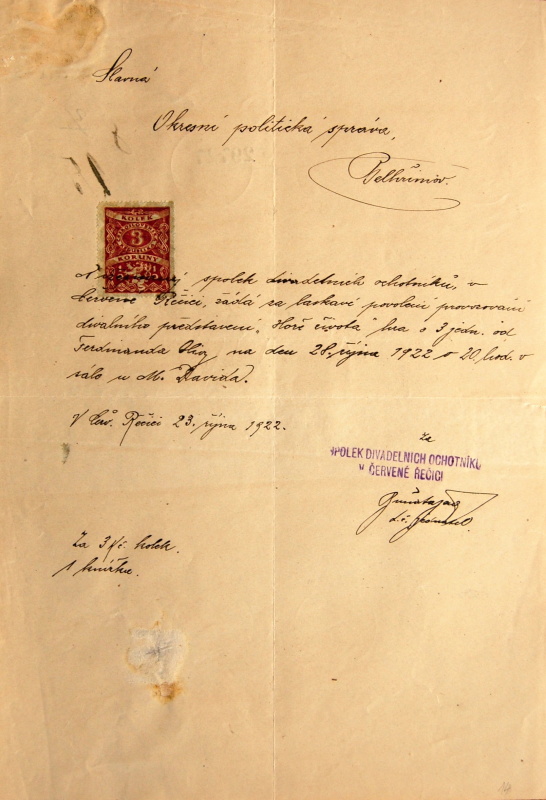 Slavná
Okresní politická správa,
Pelhřimov.
KOLEK
3
KORUNY
spolek divadelních ochotníků, v
Červené Řečici, žádá za laskavé povolení provozování
divalního představení „Hoře života" hra o 3 jedn. od
Ferdinanda na den 28. října 1922 o 20. hod. v
sále u M. Davida.
V Červ. Řečici 23. října 1922.
Za
SPOLEK DIVADELNÍCH OCHOTNÍKŮ
V ČERVENÉ ŘEČICI
t.č. jednatel
Za 3 Kč. kolek.
1 knížka.
14